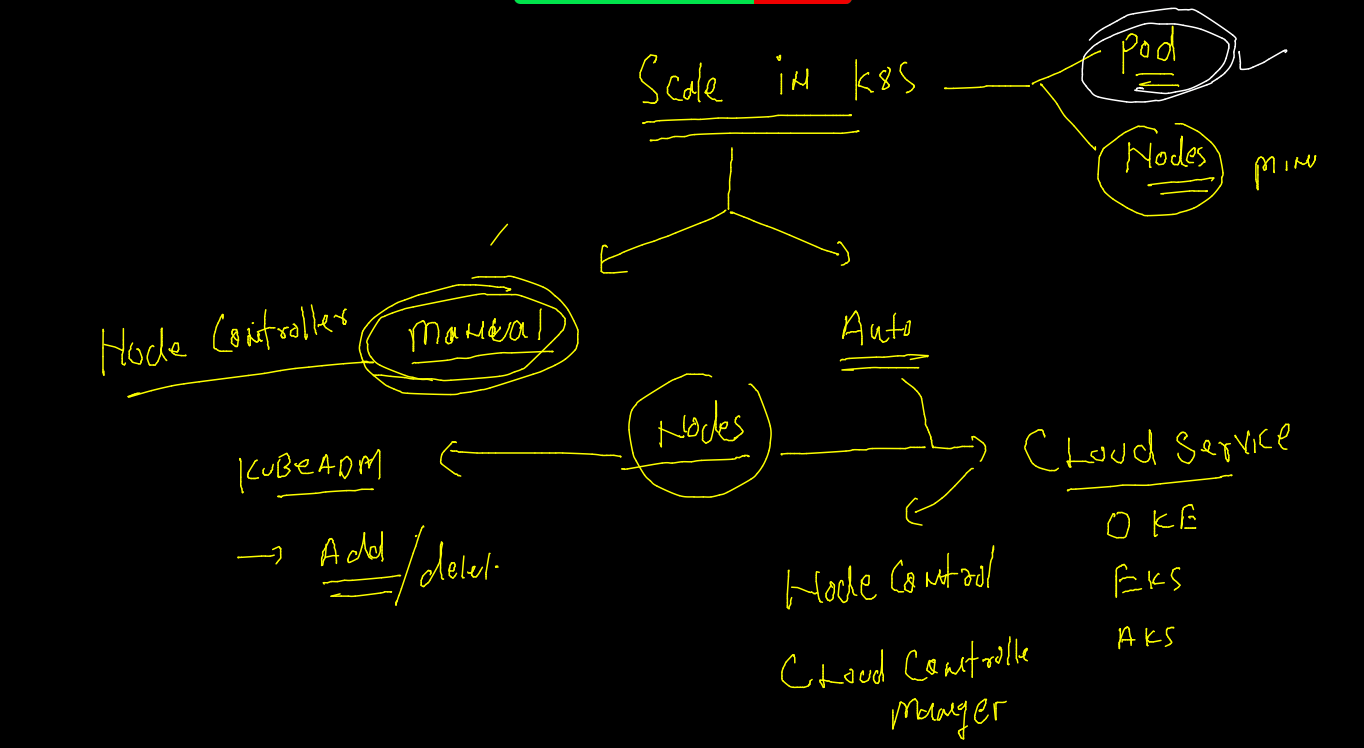 Scale in K8S
Pod
Nodes
min
Node Controller
Manual
Auto
Nodes
KUBEADM
Cloud Service
→ Add/delet.
OKE
EKS
AKS
Node Control
Cloud Controlle
Manager